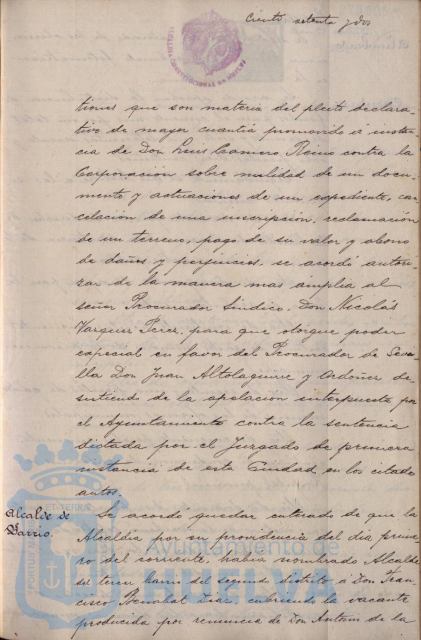 Ciento setenta y dos
ALCALDIA CONSTITUCIONAL DE HUELVA
tiones que son materia del pleito declara-
tivo de mayor cuantia promovido á instan-
cia de Don Luis Romero Reino contra la
Corporación sobre nulidad de un docu-
mento y actuaciones de un expediente, can-
celación de una inscripción, reclamación
de un terreno, pago de su valor y abono
de daños y perjuicios, se acordó autori-
zar de la manera mas amplia al
señor Procurador Sindico, Don Nicolás
Vazquez Perez, para que otorgue poder
especial en favor del Procurador de Sevi-
lla Don Juan Altolaguirre y Ordoñez de-
sistiendo de la apelación interpuesta por
el Ayuntamiento contra la sentencia
dictada por el Juzgado de primera
instancia de esta Ciudad, en los citados
autos.
Alcalde de
Barrio.
Se acordó quedar enterado de que la
Alcaldia por su providencia del dia prime-
ro del corriente, habia nombrado Alcalde
del tercer barrio del segundo distrito á Don Fran-
cisco Diaz, cubriendo la vacante
producida por renuncia de Don Antonio de la
PORTUS MARIS ET TERRAE
Ayuntamiento de
HUELVA